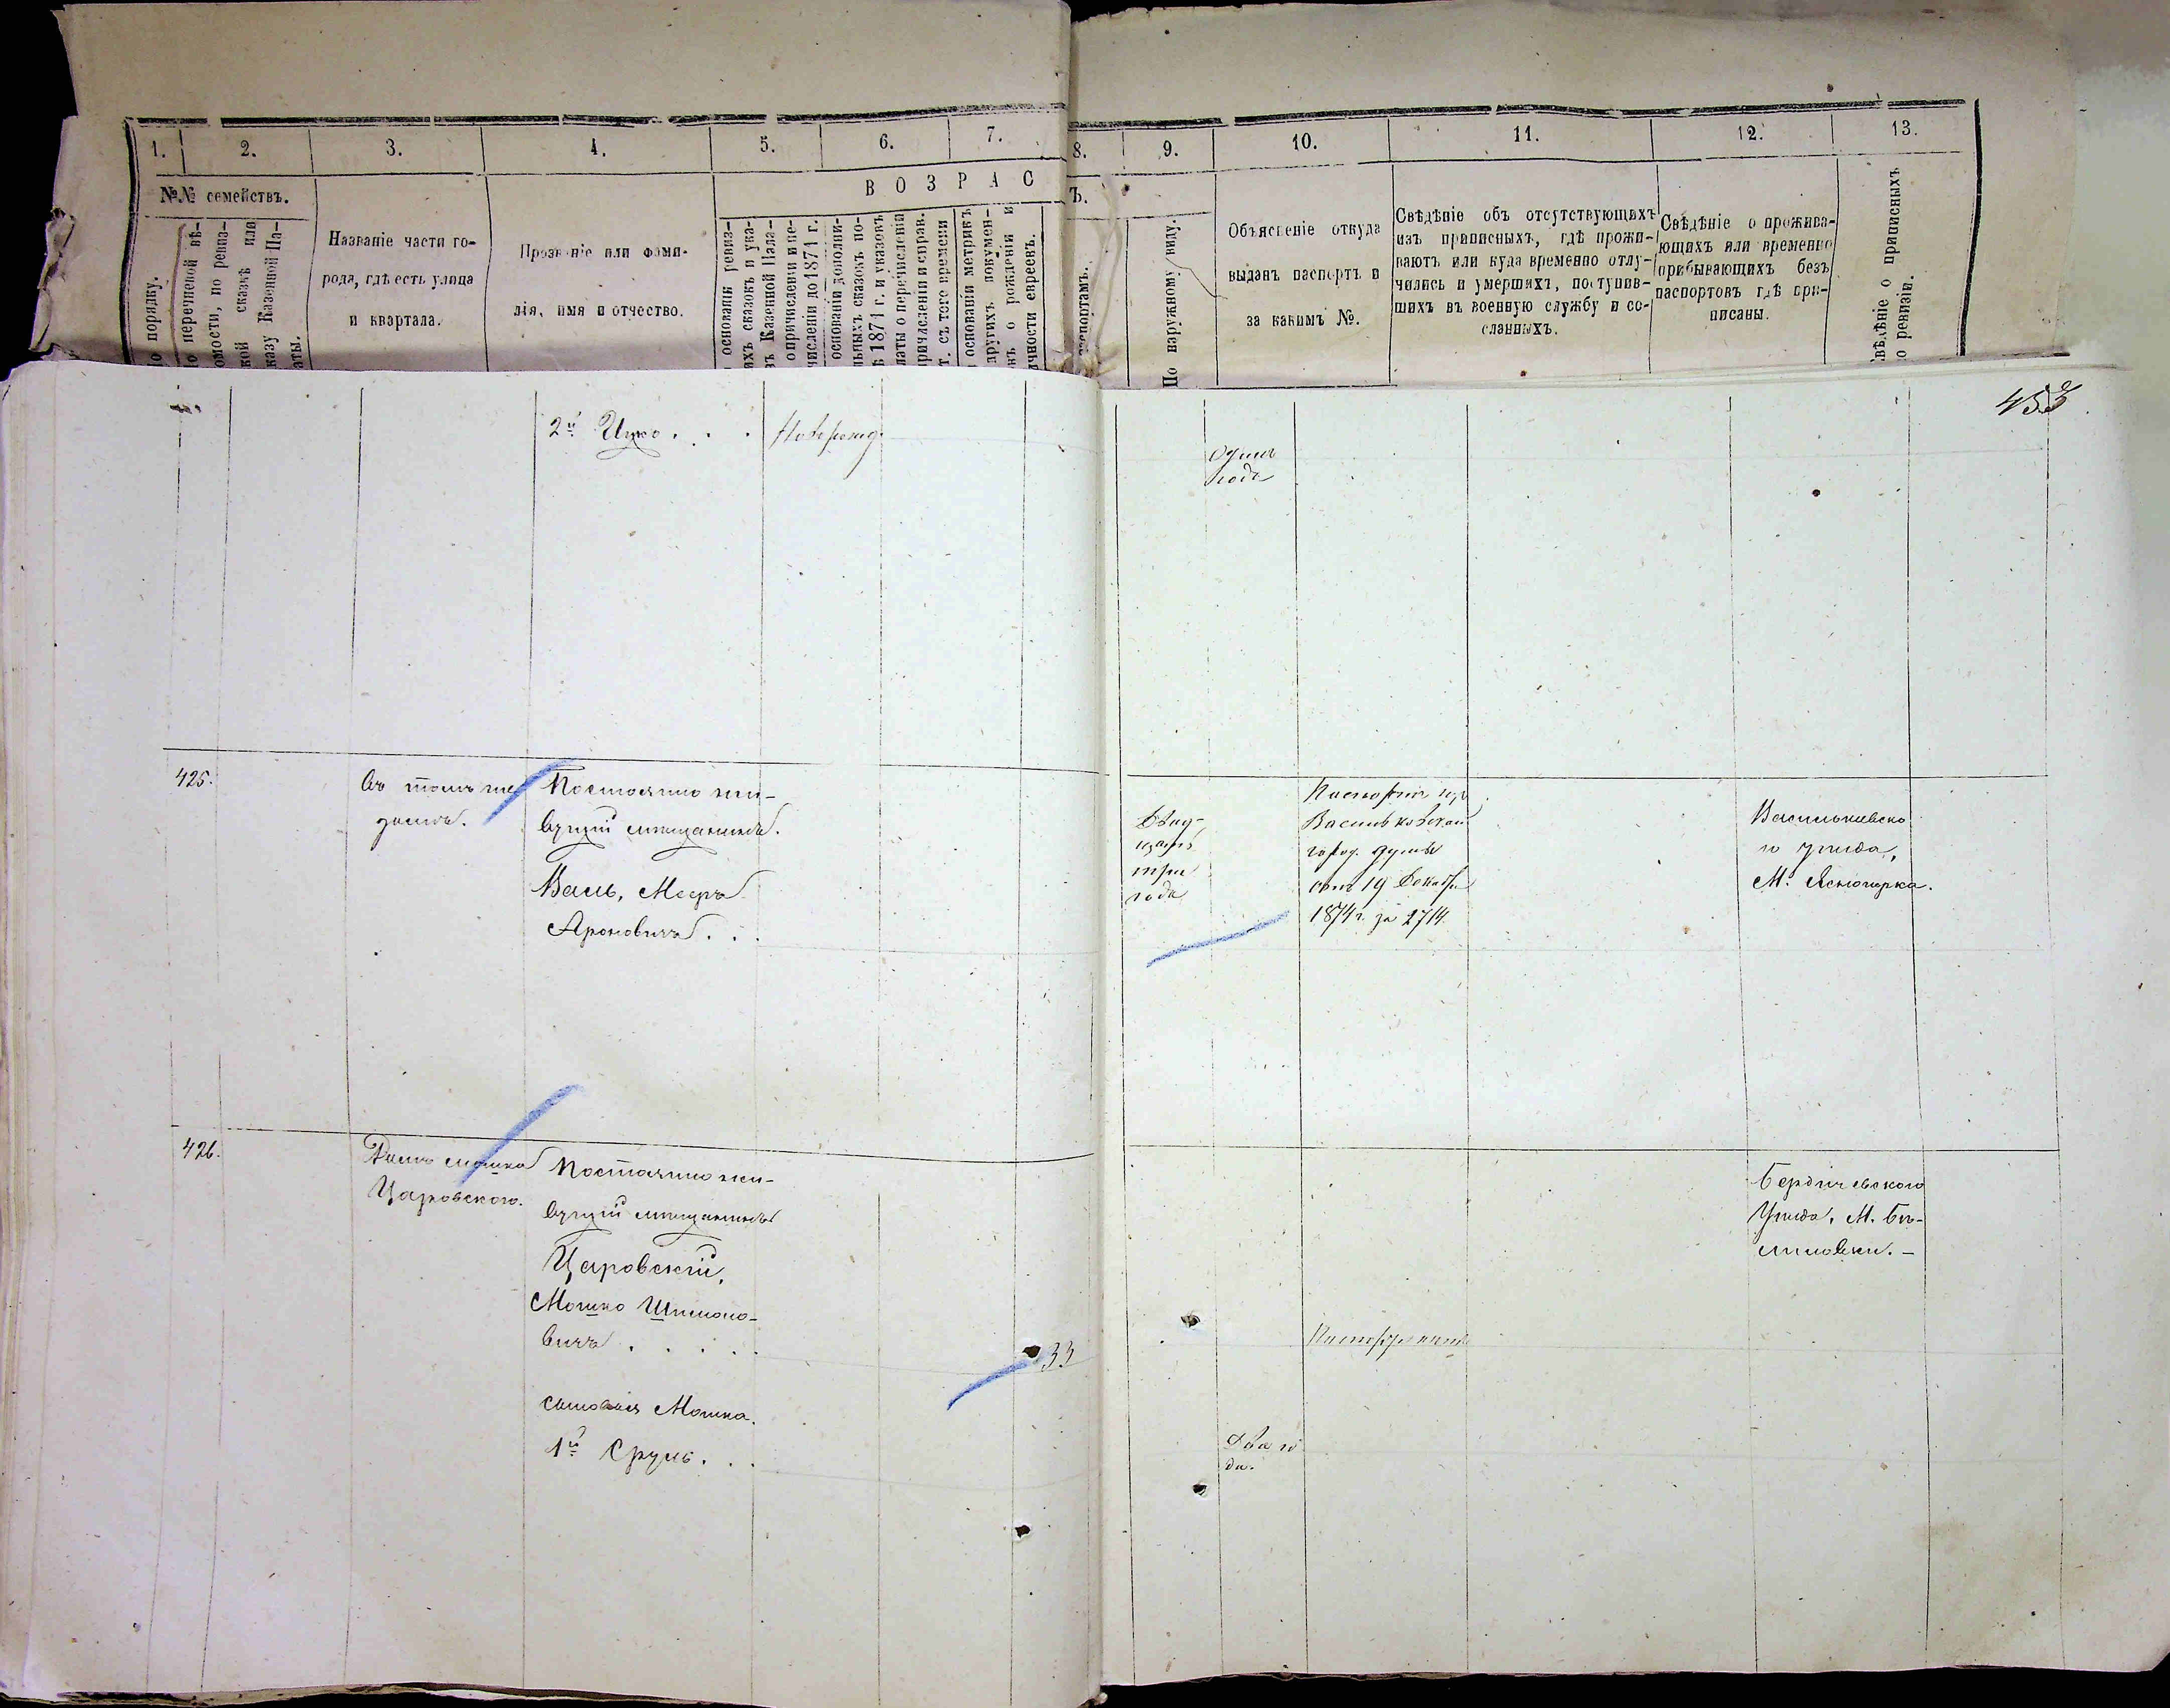 1.
2.
3.
4.
5.
6.
7.
8.
9.
10.
11.
12.
13.
№№ семействъ.
В О З Р А С
Ъ.
о порядку.
о перечневой вѣ-
омости, по ревиз-
кой сказкѣ или
казу Казенной Па-
аты.
Названіе части го-
рода, гдѣ есть улица
и квартала.
Прозваніе или фами-
лія, имя и отчество.
основаніи ревиз-
ихъ сказокъ и ука-
въ Казенной Пала-
о причисленіи и пе-
численіи до 1871 г.
основаніи дополни-
льныхъ сказокъ по-
ѣ 1871 г. и указовъ
латы о перечисленіи
причисленіи и справ.
т. съ того времени
основаніи метрикъ
другихъ докумен-
въ о рожденіи и
ичности евреевъ.
аспортамъ.
По наружному виду.
Объясненіе откуда
выданъ паспортъ и
за какимъ №.
Свѣдѣніе объ отсутствующихъ
изъ приписныхъ, гдѣ прожи-
ваютъ или куда временно отлу-
чились и умершихъ, поступив-
шихъ въ военную службу и со-
сланныхъ.
Свѣдѣніе о прожива-
ющихъ или временно
прибывающихъ безъ
паспортовъ гдѣ при-
писаны.
вѣдѣніе о приписныхъ
о ревизіи.
453
2й Ицко . . .
Новорожд.
Одинъ
года
425.
Въ томъ же
домѣ.
Постоянно жи-
вущій мѣщанинъ.
Валь, Мееръ
Ароновичъ . . .
Двад-
цать
три
года
Паспортъ изъ
Васильковской
город. думы
отъ 19 Декабр
1874 г. за 2714.
Васильковско
го уѣзда,
М. Ясногорка.
426.
Домъ Мошка
Царовского.
Постоянно жи-
вущій мѣщанинъ
Царовскій,
Мошко Шимоно-
вичъ . . . . .
33
сыновья Мошка.
1й Сруль . . .
Два го
да.
Бердичевского
Уѣзда, М. Бѣ-
лиловки. –